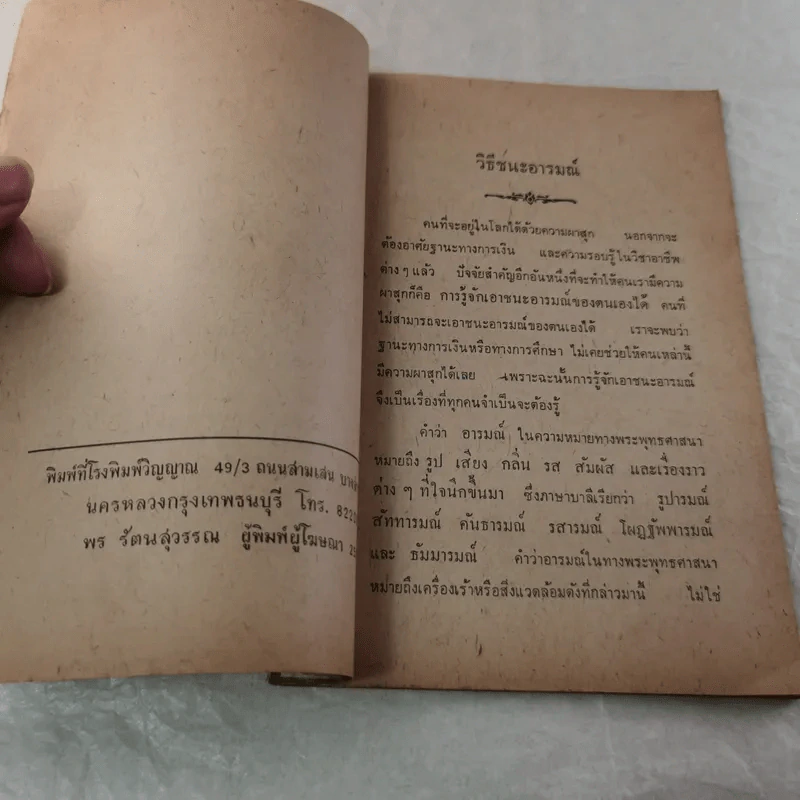 พิมพ์ที่โรงพิมพ์วิญญาณ 49/3 ถนนสามเสน
นครหลวงกรุงเทพธนบุรี โทร.
พร รัตนสุวรรณ ผู้พิมพ์ผู้โฆษณา
วิธีชนะอารมณ์
คนที่จะอยู่ในโลกได้ด้วยความผาสุก นอกจากจะ
ต้องอาศัยฐานะทางการเงิน และความรอบรู้ในวิชาอาชีพ
ต่าง ๆ แล้ว ปัจจัยสำคัญอีกอันหนึ่งที่จะทำให้คนเรามีความ
ผาสุกก็คือ การรู้จักเอาชนะอารมณ์ของตนเองได้ คนที่
ไม่สามารถจะเอาชนะอารมณ์ของตนเองได้ เราจะพบว่า
ฐานะทางการเงินหรือทางการศึกษา ไม่เคยช่วยให้คนเหล่านี้
มีความผาสุกได้เลย เพราะฉะนั้นการรู้จักเอาชนะอารมณ์
จึงเป็นเรื่องที่ทุกคนจำเป็นจะต้องรู้
คำว่า อารมณ์ ในความหมายทางพระพุทธศาสนา
หมายถึง รูป เสียง กลิ่น รส สัมผัส และเรื่องราว
ต่าง ๆ ที่ใจนึกขึ้นมา ซึ่งภาษาบาลีเรียกว่า รูปารมณ์
สัททารมณ์ คันธารมณ์ รสารมณ์ โผฎฐัพพารมณ์
และ ธัมมารมณ์ คำว่าอารมณ์ในทางพระพุทธศาสนา
หมายถึงเครื่องเร้าหรือสิ่งแวดล้อมดังที่กล่าวมานี้ ไม่ใช่